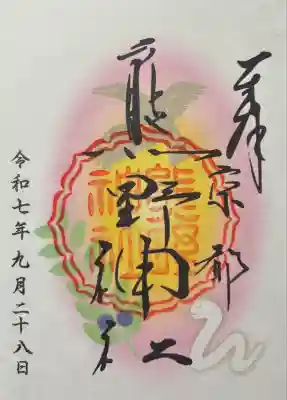 京都
熊野神社
熊野
神社
令和七年九月二十八日